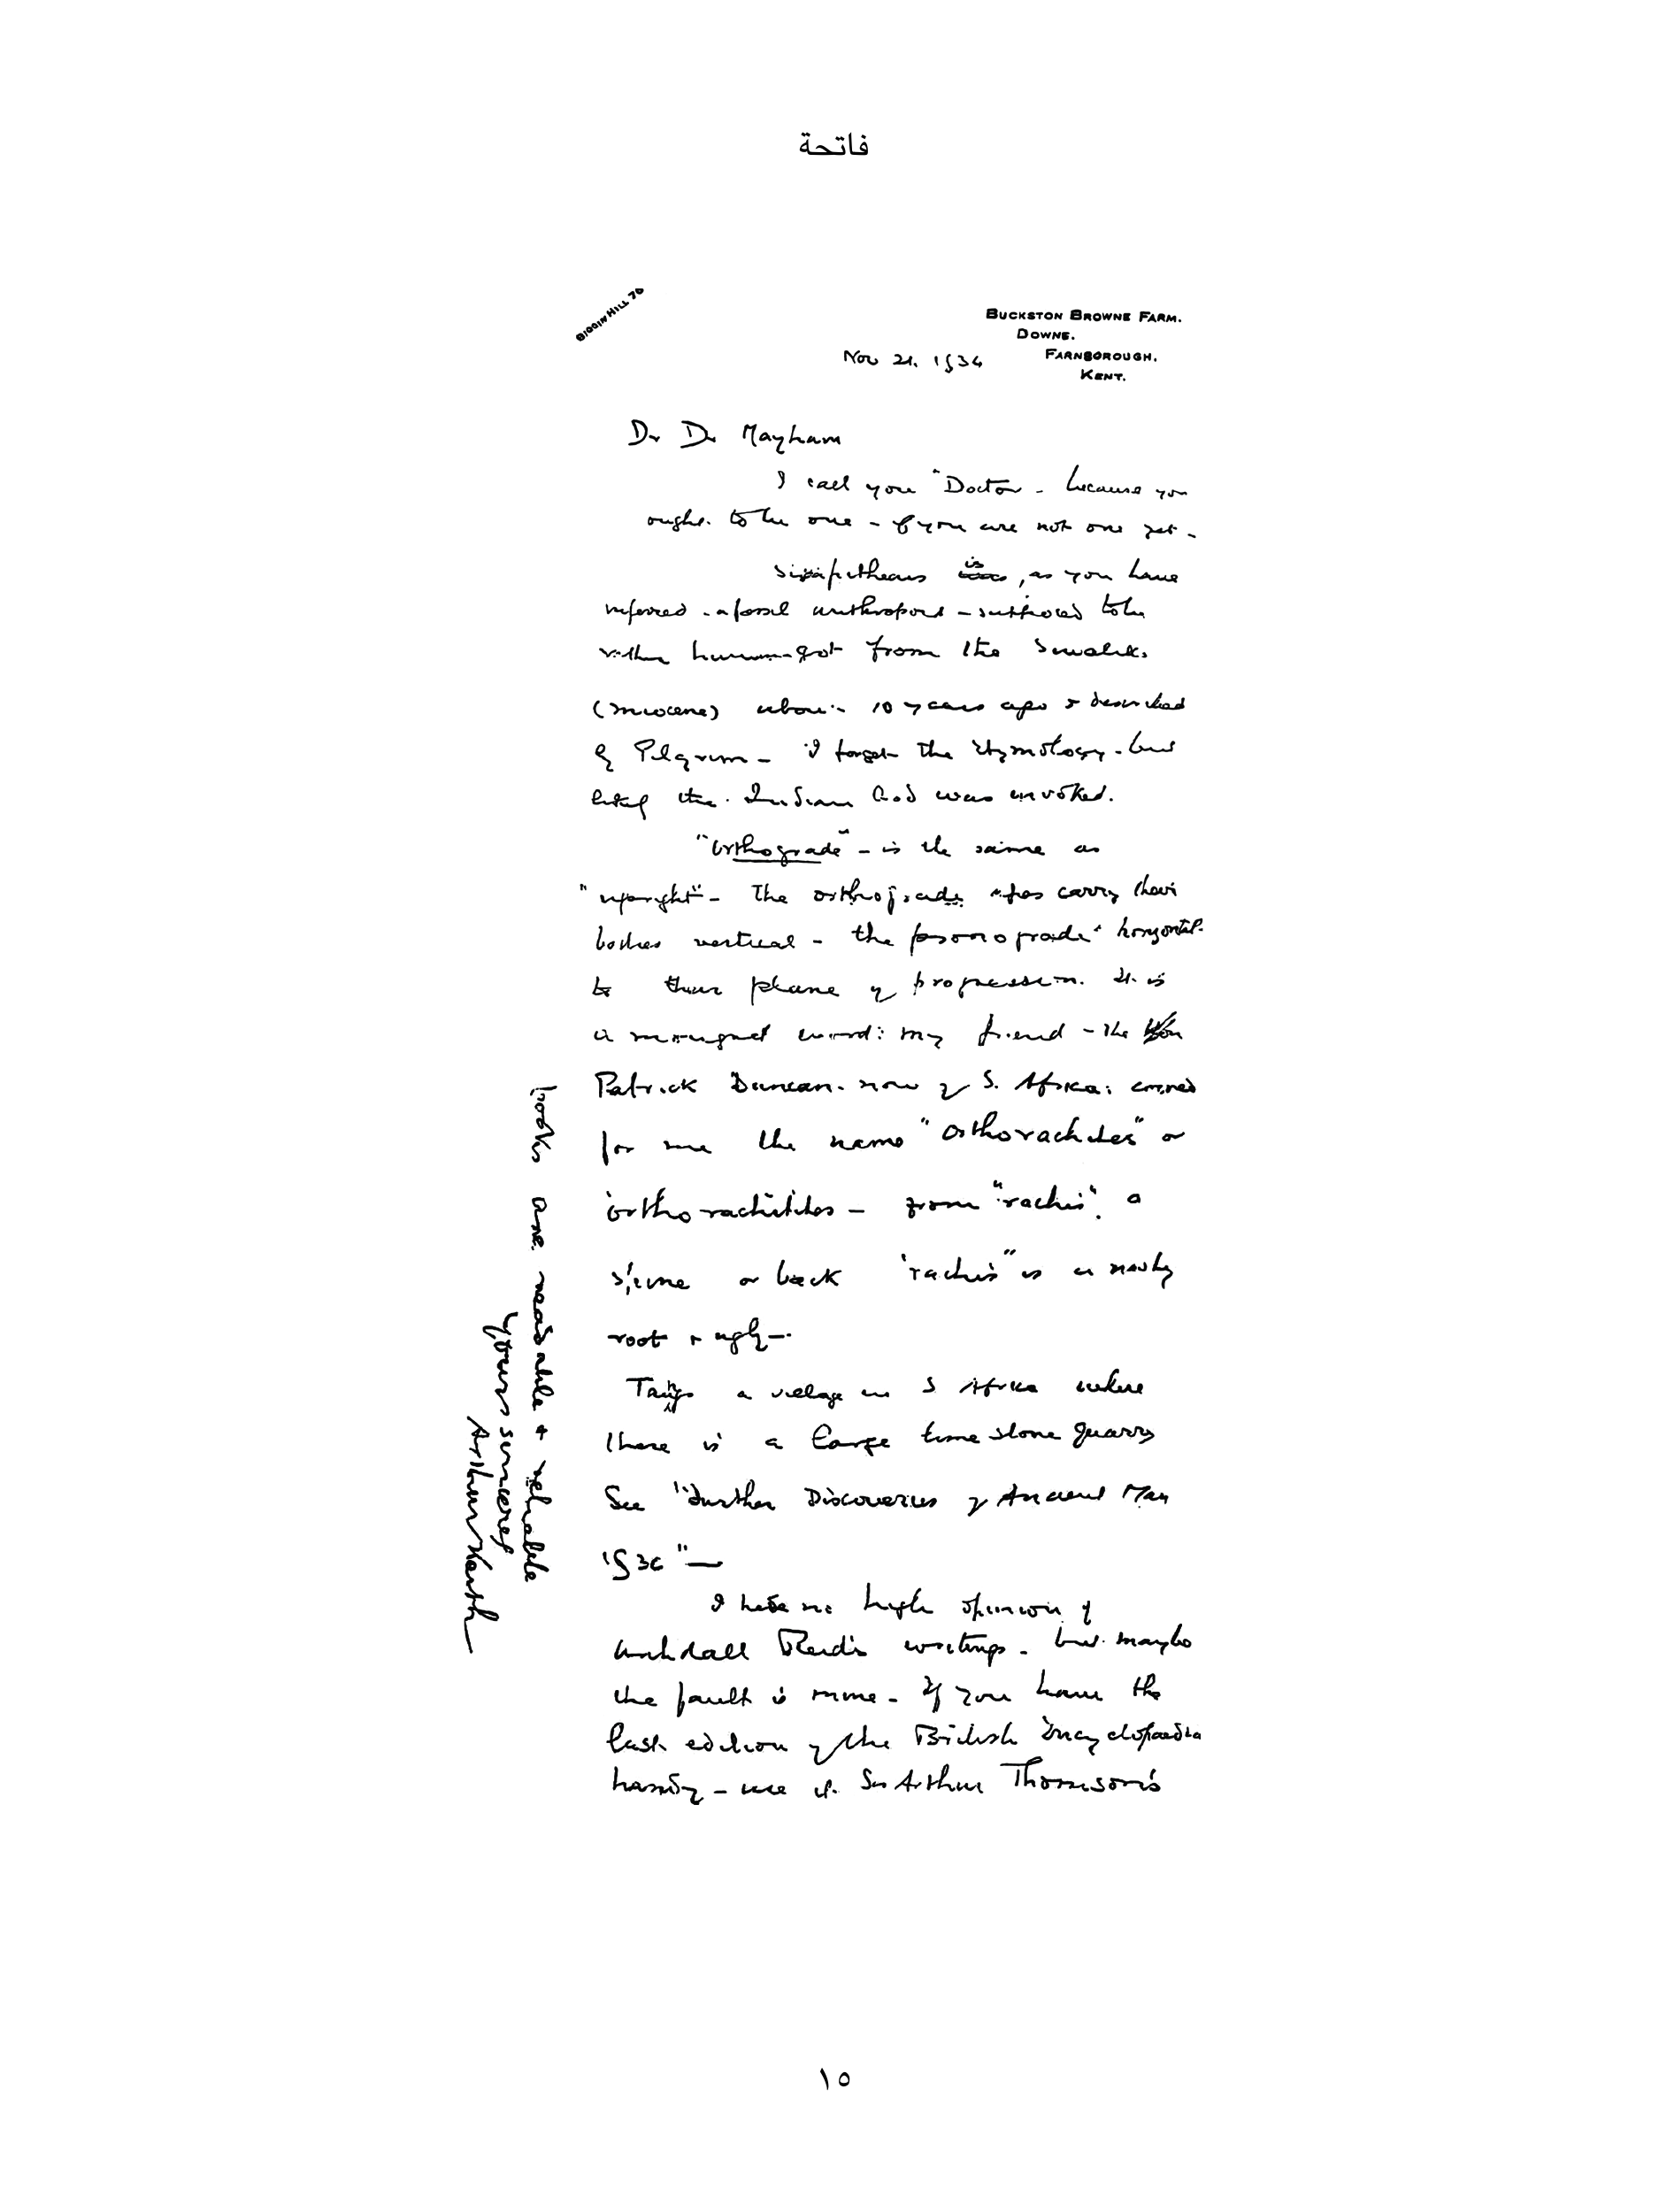 فاتحة
BIGGIN HILL 70
BUCKSTON BROWNE FARM.
DOWNE.
FARNBOROUGH.
KENT.
Nov 21. 1934
Dr Dr Mayham
I call you "Doctor - because you
ought to be one - if you are not one yet -
is, as you have
inferred - a fossil anthropoid - supposed to be
rather human - got from the Siwaliks
(Miocene) about 10 years ago & described
by Pilgrim - I forget the etymology - but
the Indian God was invoked.
"Orthograde" - is the same as
"upright" - The orthograde apes carry their
bodies vertical - the horizontal
to their plane of progression. It is
a mongrel word: my friend - the Hon
Patrick Duncan - now of S. Africa: coined
for me the name "Orthorachites" or
orthorachitites - from "rachis". a
spine or back "rachis" is a nasty
root & ugly -
Taungs a village in S Africa where
there is a large lime stone quarry
See "Further Discoveries of Ancient Man
193" -
I have no high opinion of
Archdall Reid's writings - but maybe
the fault is mine - If you have the
last edition of the British Encyclopaedia
handy - use it. Sir Arthur Thomson's
books are readable & reliable
Yours sincerely
Arthur Keith
١٥